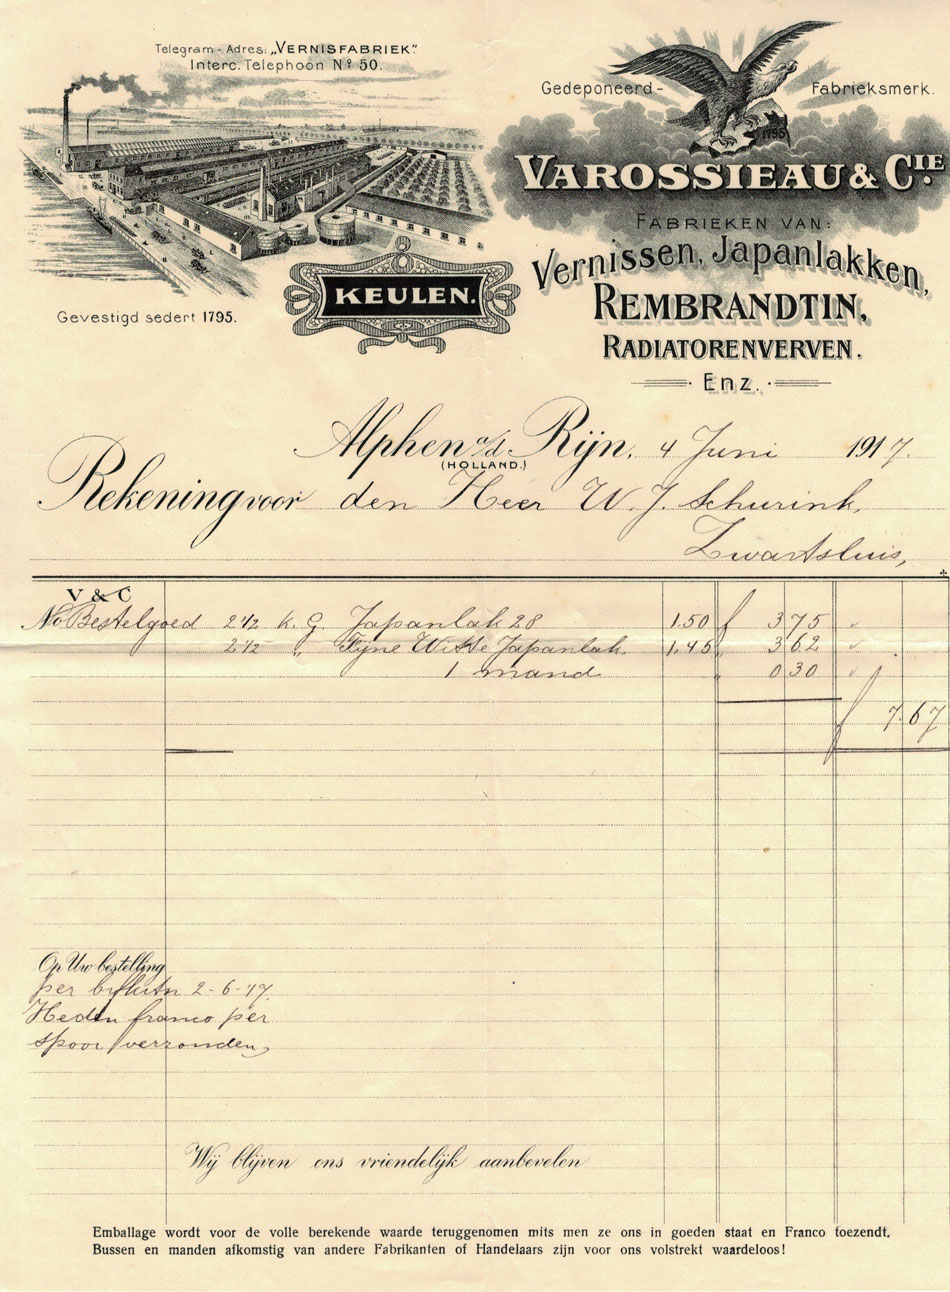 Telegram-Adres: „VERNISFABRIEK".
Interc. Telephoon Nº 50.
Gedeponeerd- Fabrieksmerk.
1795
VAROSSIEAU & CIE.
FABRIEKEN VAN:
Vernissen, Japanlakken,
REMBRANDTIN,
RADIATORENVERVEN.
Enz.
KEULEN.
Gevestigd sedert 1795.
Alphen a/d Rijn, 4 Juni 1917.
(HOLLAND.)
Rekening voor den Heer W. J. Schurink,
Zwartsluis,
V & C
No Bestelgoed 2 1/2 K. G. Japanlak 28 1.50 f 3 75
2 1/2 „ Fijne Witte Japanlak 1,45 „ 3 62
1 mand „ 0 30
f 7.67
Op Uw bestelling
per 2-6-17.
Heden franco per
spoor verzonden,
Wij blijven ons vriendelijk aanbevelen
Emballage wordt voor de volle berekende waarde teruggenomen mits men ze ons in goeden staat en Franco toezendt.
Bussen en manden afkomstig van andere Fabrikanten of Handelaars zijn voor ons volstrekt waardeloos!